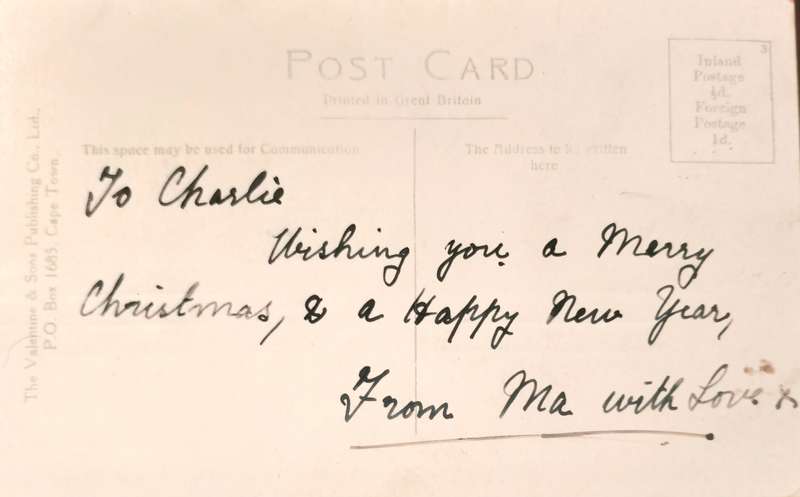 POST CARD
Printed in Great Britain
3
Inland
Postage
½d.
Foreign
Postage
1d.
This space may be used for Communication
The Address to be written
here
The Valentine & Sons Publishing Co., Ltd.,
P.O. Box 1685, Cape Town.
To Charlie
Wishing you a Merry
Christmas, & a Happy New Year,
From Ma with Love x